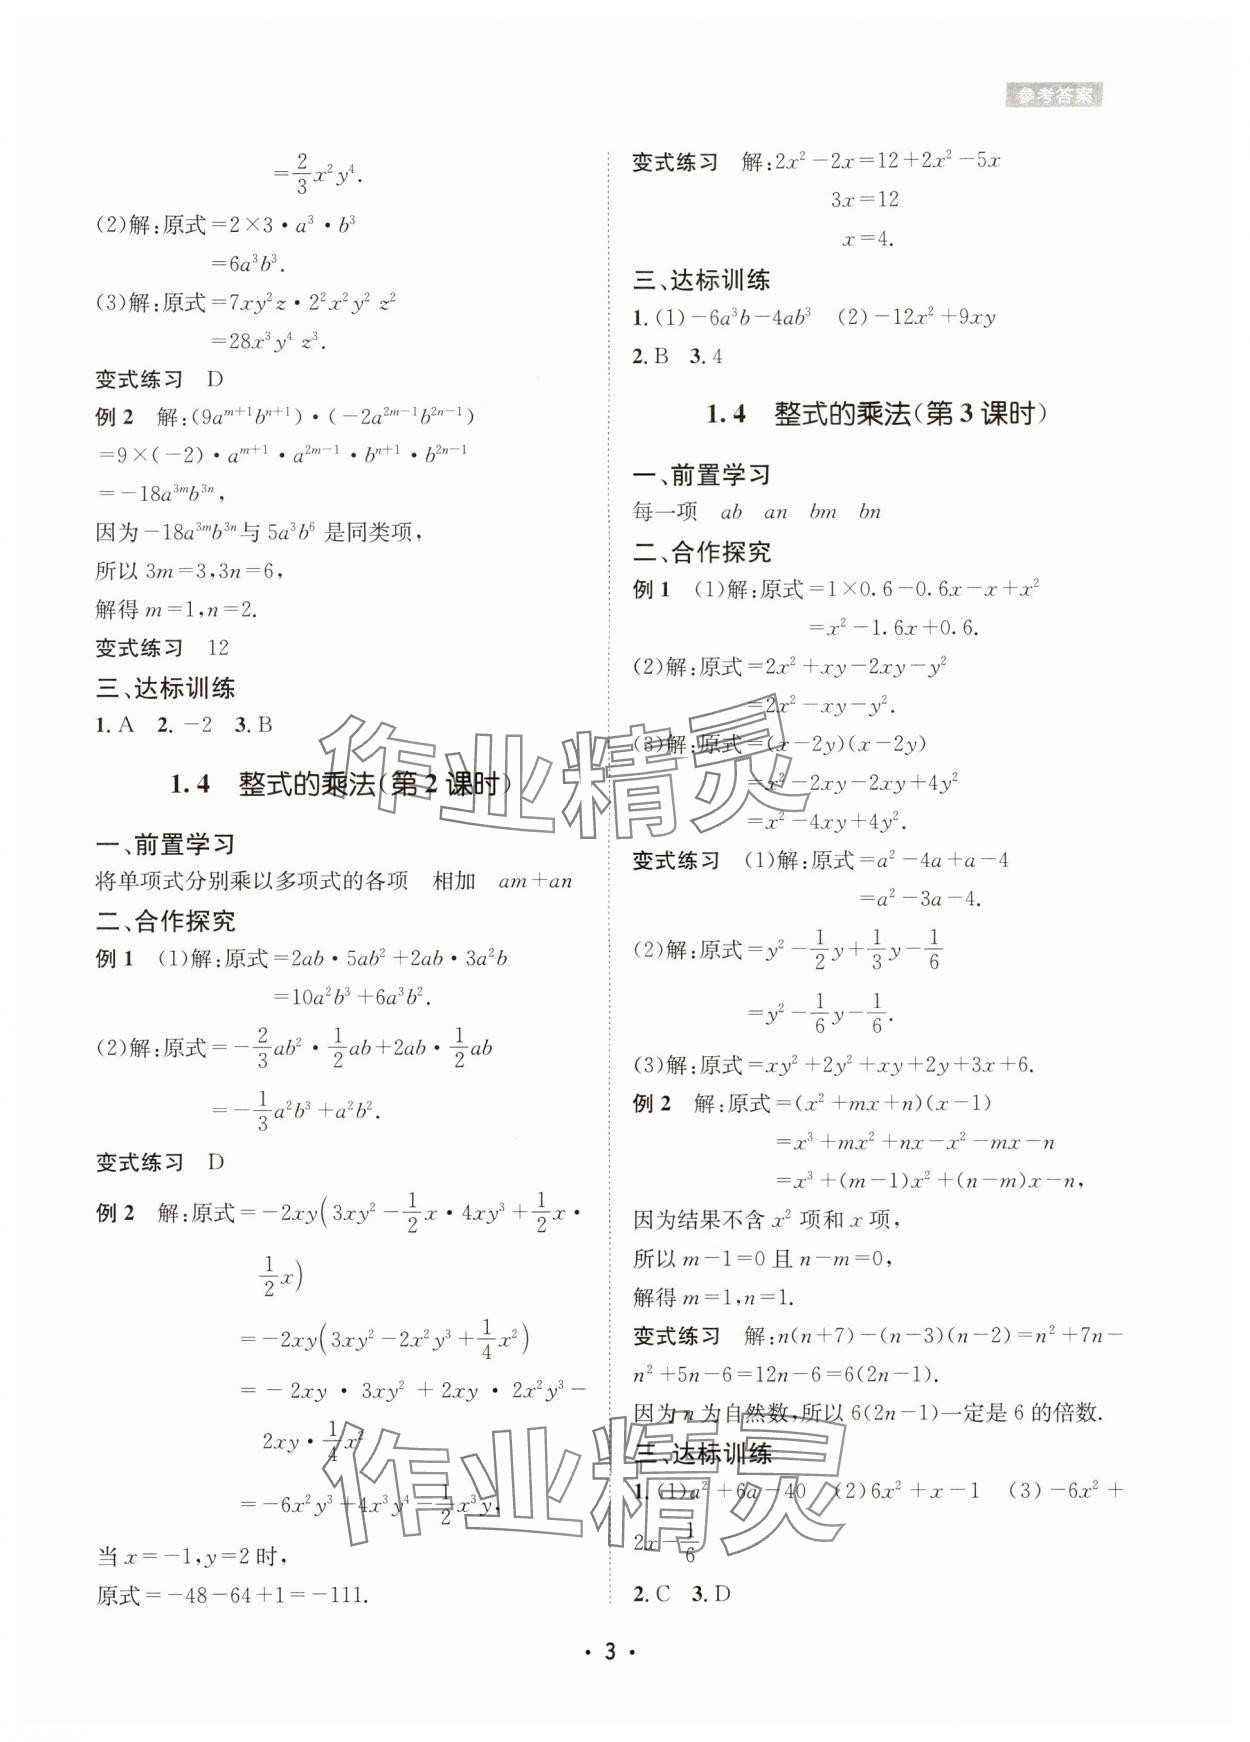 参考答案
=2/3 x²y⁴.
(2)解:原式=2×3·a³·b³
=6a³b³.
(3)解:原式=7xy²z·2²x²y² z²
=28x³y⁴ z³.
变式练习 D
例 2 解:(9aᵐ⁺¹bⁿ⁺¹)·(-2a²ᵐ⁻¹b²ⁿ⁻¹)
=9×(-2)·aᵐ⁺¹·a²ᵐ⁻¹·bⁿ⁺¹·b²ⁿ⁻¹
=-18a³ᵐb³ⁿ,
因为-18a³ᵐb³ⁿ与 5a³b⁶ 是同类项,
所以 3m=3,3n=6,
解得 m=1,n=2.
变式练习 12
三、达标训练
1. A 2. -2 3. B
1.4 整式的乘法(第 2 课时)
一、前置学习
将单项式分别乘以多项式的各项 相加 am+an
二、合作探究
例 1 (1)解:原式=2ab·5ab²+2ab·3a²b
=10a²b³+6a³b².
(2)解:原式=-2/3 ab²·1/2 ab+2ab·1/2 ab
=-1/3 a²b³+a²b².
变式练习 D
例 2 解:原式=-2xy(3xy²-1/2 x·4xy³+1/2 x·
1/2 x)
=-2xy(3xy²-2x²y³+1/4 x²)
=-2xy·3xy²+2xy·2x²y³-
2xy·1/4 x²
=-6x²y³+4x³y⁴-1/2 x³y,
当 x=-1,y=2 时,
原式=-48-64+1=-111.
变式练习 解:2x²-2x=12+2x²-5x
3x=12
x=4.
三、达标训练
1. (1)-6a³b-4ab³ (2)-12x²+9xy
2. B 3. 4
1.4 整式的乘法(第 3 课时)
一、前置学习
每一项 ab an bm bn
二、合作探究
例 1 (1)解:原式=1×0.6-0.6x-x+x²
=x²-1.6x+0.6.
(2)解:原式=2x²+xy-2xy-y²
=2x²-xy-y².
(3)解:原式=(x-2y)(x-2y)
=x²-2xy-2xy+4y²
=x²-4xy+4y².
变式练习 (1)解:原式=a²-4a+a-4
=a²-3a-4.
(2)解:原式=y²-1/2 y+1/3 y-1/6
=y²-1/6 y-1/6.
(3)解:原式=xy²+2y²+xy+2y+3x+6.
例 2 解:原式=(x²+mx+n)(x-1)
=x³+mx²+nx-x²-mx-n
=x³+(m-1)x²+(n-m)x-n,
因为结果不含 x² 项和 x 项,
所以 m-1=0 且 n-m=0,
解得 m=1,n=1.
变式练习 解:n(n+7)-(n-3)(n-2)=n²+7n-
n²+5n-6=12n-6=6(2n-1).
因为 n 为自然数,所以 6(2n-1)一定是 6 的倍数.
三、达标训练
1. (1)a²+6a-40 (2)6x²+x-1 (3)-6x²+
2x-1/6
2. C 3. D
· 3 ·
作业精灵
作业精灵